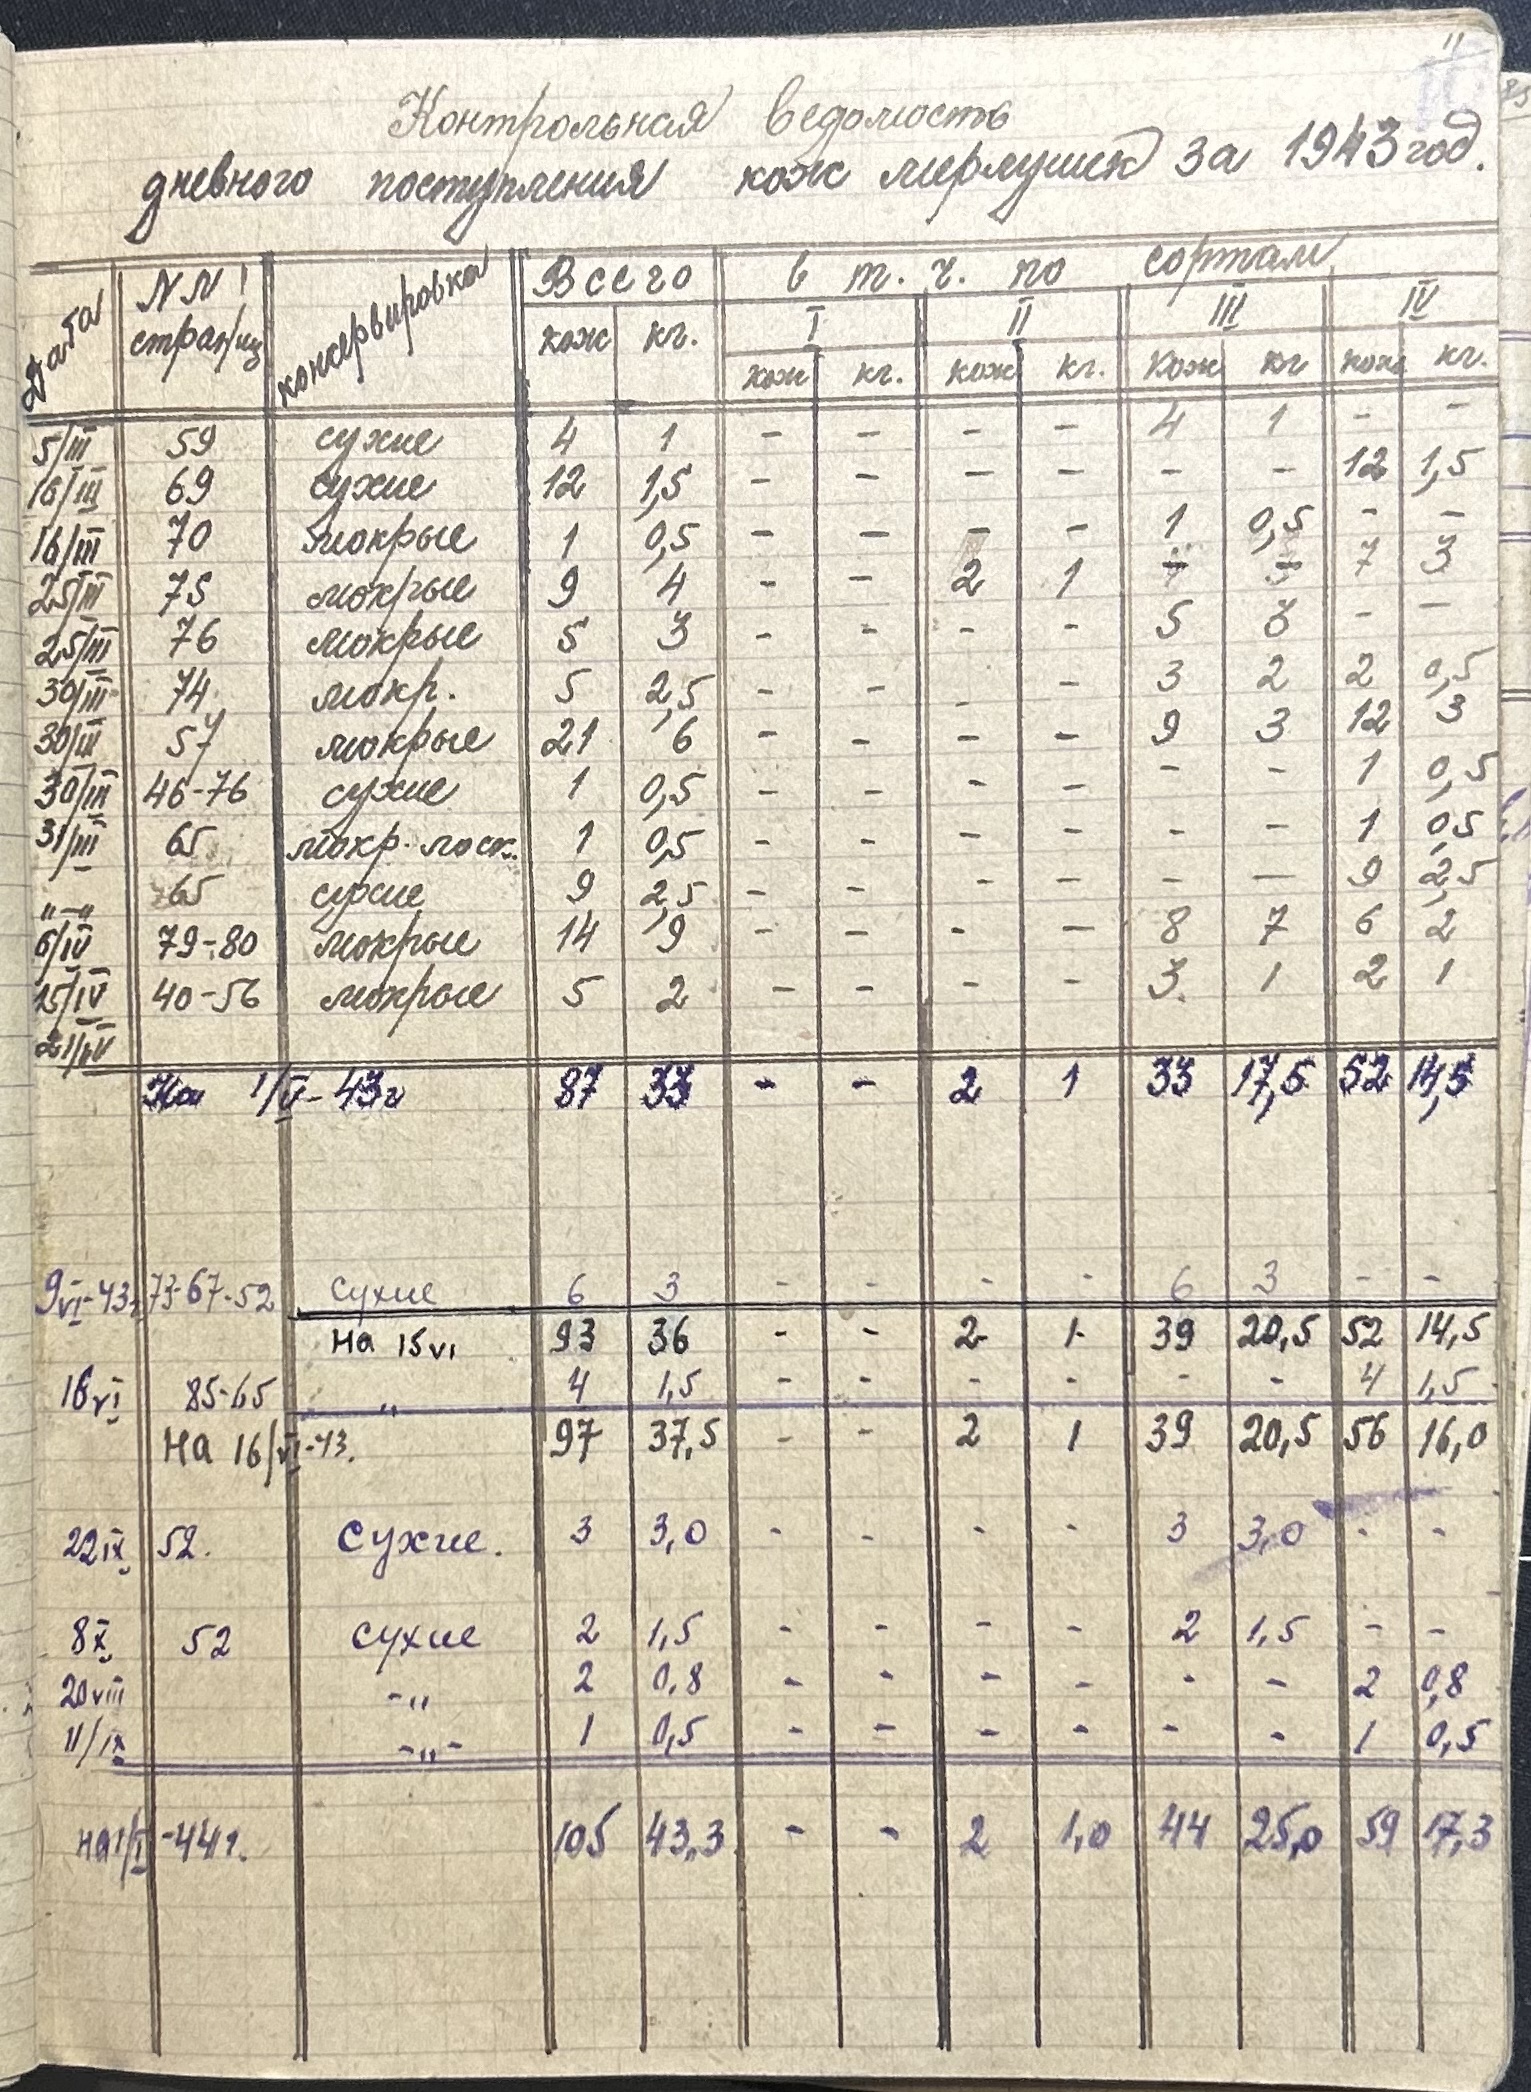 11
Контрольная ведомость
дневного поступления кож мерлушек за 1943 год.
Дата NN стран/иц консервировка Всего в т. ч. по сортам
I II III IV
кож кг. кож кг. кож кг. кож кг кож кг.
5/III 59 сухие 4 1 - - - - 4 1 - -
16/III 69 сухие 12 1,5 - - - - - - 12 1,5
16/III 70 мокрые 1 0,5 - - - - 1 0,5 - -
25/III 75 мокрые 9 4 - - 2 1 - - 7 3
25/III 76 мокрые 5 3 - - - - 5 3 - -
30/III 74 мокр. 5 2,5 - - - - 3 2 2 0,5
30/III 57 мокрые 21 6 - - - - 9 3 12 3
30/III 46-76 сухие 1 0,5 - - - - - - 1 0,5
31/III 65 мокр. 1 0,5 - - - - - - 1 0,5
"-" 65 сухие 9 2,5 - - - - - - 9 2,5
6/IV 79-80 мокрые 14 9 - - - - 8 7 6 2
15/IV 40-56 мокрые 5 2 - - - - 3. 1 2 1
21/IV
На 1/V-43г 87 33 - - 2 1 33 17,5 52 14,5
9VI-43г. 73-67-52 сухие 6 3 - - - - 6 3 - -
На 15 VI 93 36 - - 2 1 39 20,5 52 14,5
16 VI 85-65 " 4 1,5 - - - - - - 4 1,5
На 16/VI-43. 97 37,5 - - 2 1 39 20,5 56 16,0
22 IX 52. Сухие. 3 3,0 - - - - 3 3,0 - -
8 X 52 сухие 2 1,5 - - - - 2 1,5 - -
20 VIII -" 2 0,8 - - - - - - 2 0,8
11/IX -"- 1 0,5 - - - - - - 1 0,5
на 1/I-44г. 105 43,3 - - 2 1,0 44 25,0 59 17,3